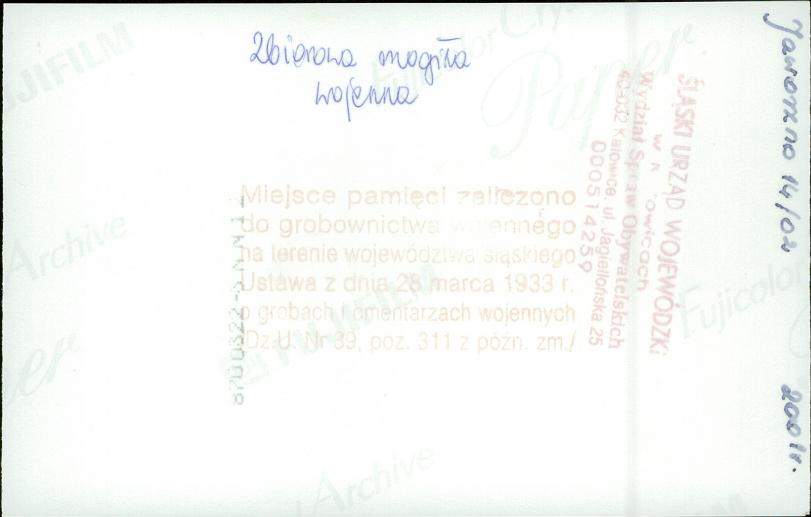 Zbiorowa mogiła
wojenna
Miejsce pamięci zaliczono
do grobownictwa wojennego
na terenie województwa śląskiego
Ustawa z dnia 28 marca 1933 r.
o grobach i cmentarzach wojennych
/Dz.U. Nr 39, poz. 311 z późn. zm./
ŚLĄSKI URZĄD WOJEWÓDZKI
w Katowicach
Wydział Spraw Obywatelskich
40-032 Katowice, ul. Jagiellońska 25
000514259
Jaworzno 14/02
2001r.
FUJIFILM
Fujicolor Crystal
Archive
Paper
Archive
FUJIFILM
Fujicolor
Archive